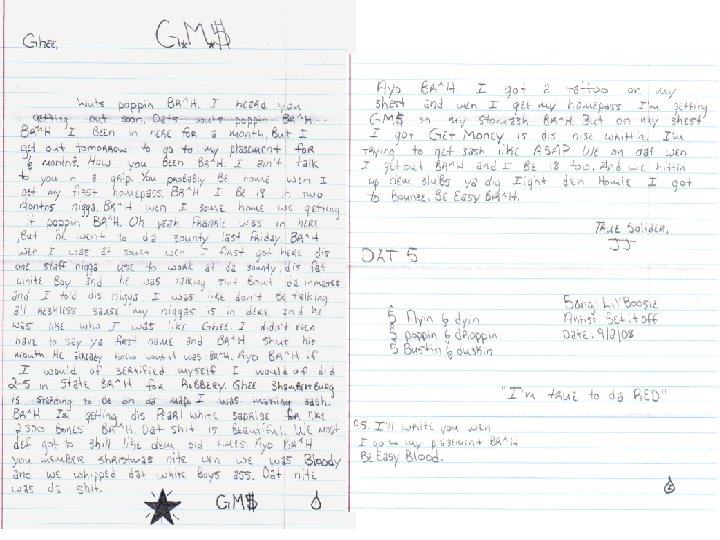 Ghee, GM$
Wuts poppin BR^H. I heard you
getting out soon. Dats wuts poppin BR^H.
BR^H I BEEN in here for a month, But I
get out tomorrow to go to my plasement for
6 months. How you BEEN BR^H. I ain't talk
to you in a grip. You probably BE home wen I
get my first homepass. BR^H I BE 18 in two
months nigga. BR^H wen I some home we getting
it poppin. BR^H. Oh yeah Frankie was in here
, But he went to da sounty last Friday. BR^H
wen I was at wen I first got here dis
one staff nigga use to work at da sounty, dis fat
white Boy and he was talking shit Bout da inmates
and I told dis nigga I was like don't BE talking
all reskless sause my niggas is in dere and he
was like who I was like Ghee. I didn't even
have to say ya first name and BR^H shut his
mouth. He already know what it was BR^H. Ayo BR^H if
I would of sertified myself I would of did
2-5 in State BR^H for RoBBery. Ghee Shambersburg
is starting to BE on da map. I was making sash.
BR^H I'm getting dis Pearl white saprise for like
2500 Bones BR^H. Dat shit is BEautiful. We most
def got to shill like dem old times Ayo BR^H
you memBER shristmas nite wen we was Bloody
and we whipped dat white Boys ass. Dat nite
was da shit.
GM$
Ayo BR^H I got a tattoo on my
shest and wen I get my homepass I'm getting
GM$ on my stomash BR^H. But on my shest
I got GET MONEY is dis nise writtin. I'm
trying to get sash like ASAP. We on dat wen
I get out BR^H and I BE 18 too. And we hittin
up new sluBs ya dig. Iight den Homie I got
to Bounse. BE Easy BR^H.
TRUE Solider,
JJ
DAT 5
5 Flyin 6 dyin
5 poppin 6 droppin
5 Bustin 6 duskin
Song: Lil' Boosie
Artist: Set it off
Date: 9/2/08
"I'm TRUE to da RED"
P.S. I'll write you wen
I go to my plasement BR^H
BE Easy Blood.
2